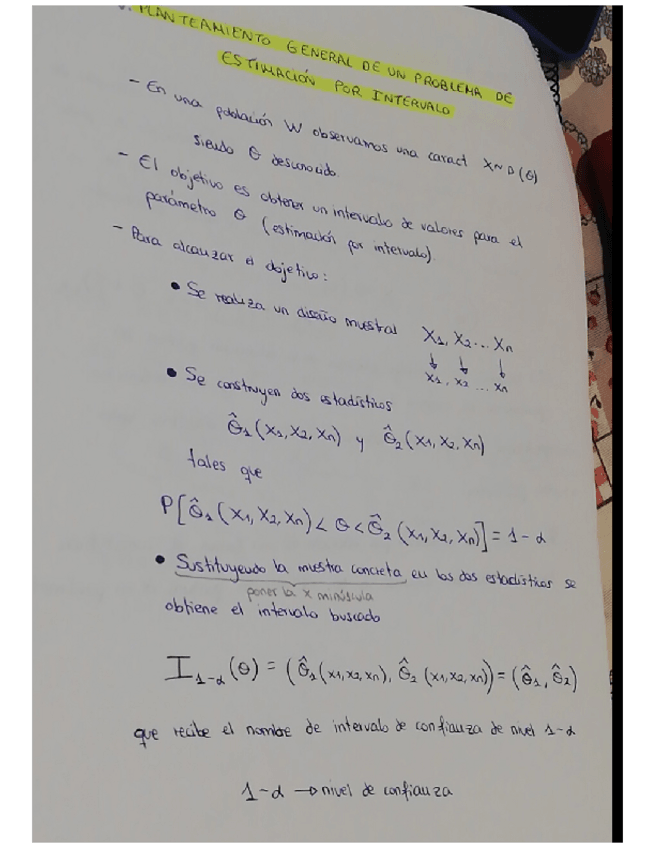 PLANTEAMIENTO GENERAL DE UN PROBLEMA DE
ESTIMACIÓN POR INTERVALO
- En una población W observamos una caract X~D(θ)
siendo θ desconocido.
- El objetivo es obtener un intervalo de valores para el
parámetro θ (estimación por intervalo).
- Para alcanzar el objetivo:
• Se realiza un diseño muestral X₁, X₂... Xₙ
↓ ↓ ↓
x₁, x₂ ... xₙ
• Se construyen dos estadísticos
θ̂₁(X₁, X₂, Xₙ) y θ̂₂(X₁, X₂, Xₙ)
tales que
P[θ̂₁(X₁, X₂, Xₙ) < θ < θ̂₂(X₁, X₂, Xₙ)] = 1-α
• Sustituyendo la muestra concreta en los dos estadísticos se
poner la x minúscula
obtiene el intervalo buscado
I₁₋α(θ) = (θ̂₁(x₁,x₂,xₙ), θ̂₂(x₁,x₂,xₙ)) = (θ̂₁, θ̂₂)
que recibe el nombre de intervalo de confianza de nivel 1-α
1-α → nivel de confianza